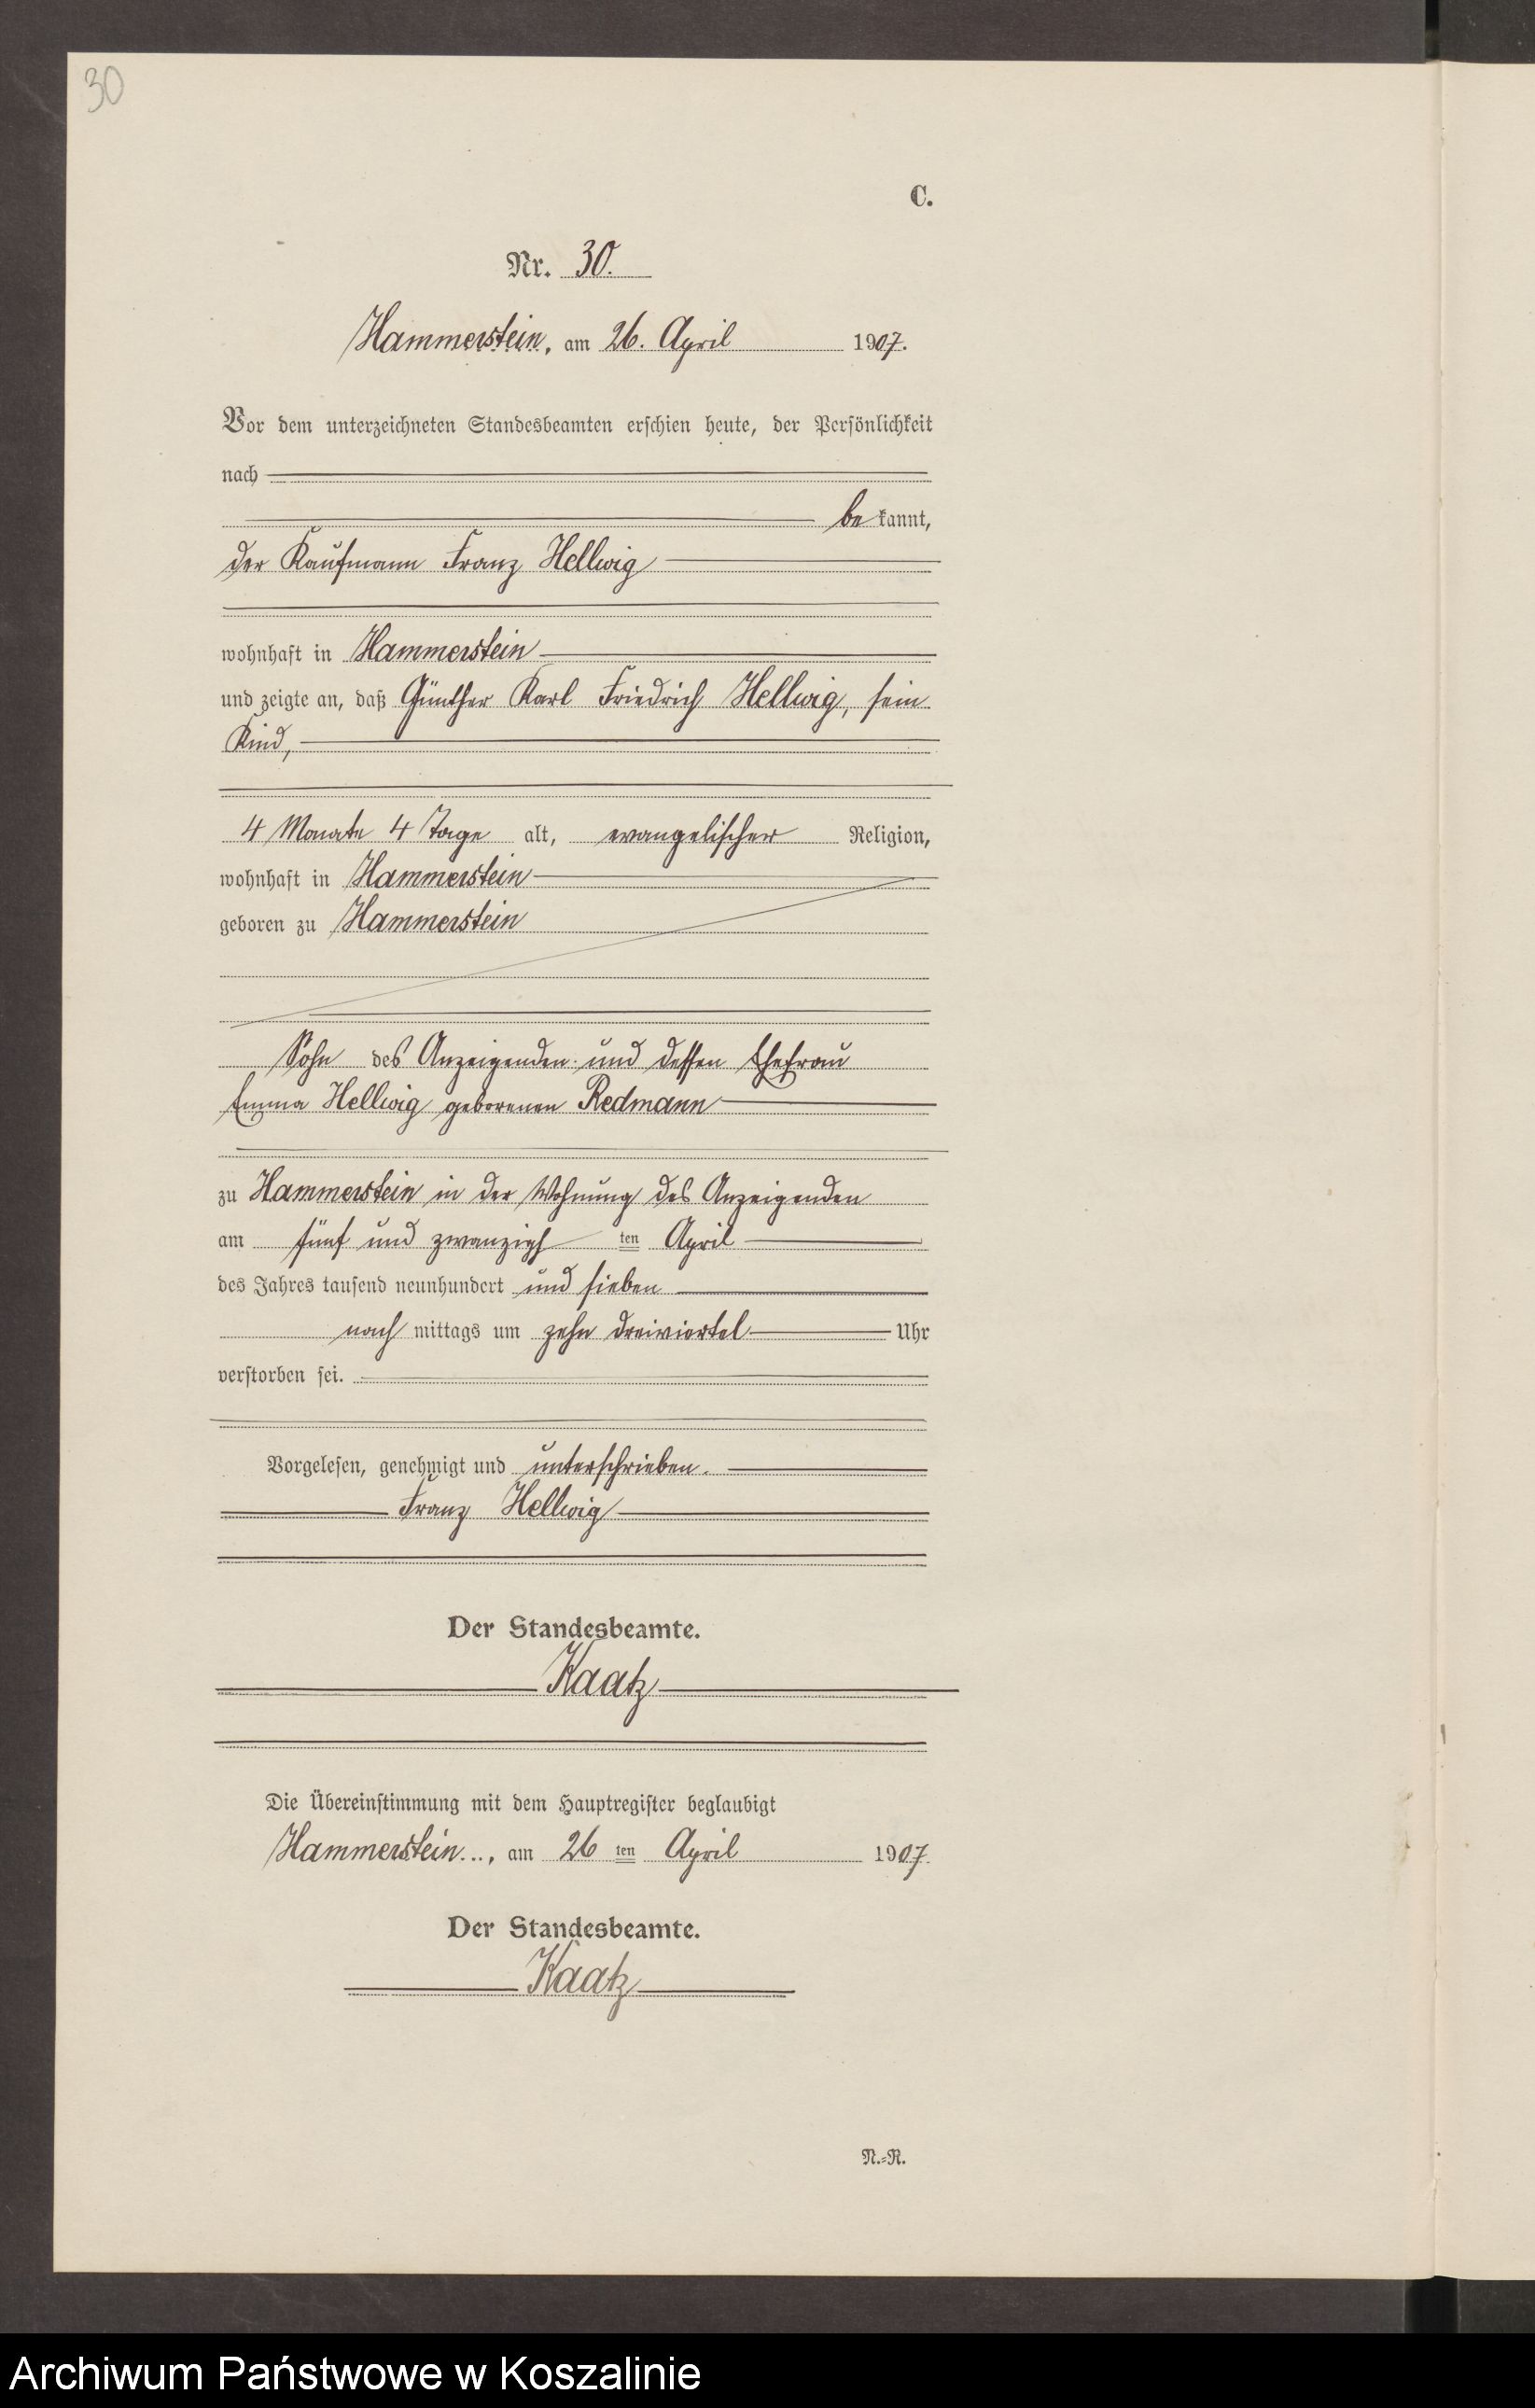 30
C.
Nr. 30.
Hammerstein, am 26. April 1907.
Vor dem unterzeichneten Standesbeamten erschien heute, der Persönlichkeit
nach
be kannt,
der Kaufmann Franz Hellwig
wohnhaft in Hammerstein
und zeigte an, daß Günther Karl Friedrich Hellwig, sein
Kind,
4 Monate 4 Tage alt, evangelischer Religion,
wohnhaft in Hammerstein
geboren zu Hammerstein
Sohn des Anzeigenden und dessen Ehefrau
Emma Hellwig geborenen Redmann
zu Hammerstein in der Wohnung des Anzeigenden
am fünf und zwanzigs ten April
des Jahres tausend neunhundert und sieben
nach mittags um zehn dreiviertel Uhr
verstorben sei.
Vorgelesen, genehmigt und unterschrieben.
Franz Hellwig
Der Standesbeamte.
Kaatz
Die Übereinstimmung mit dem Hauptregister beglaubigt
Hammerstein..., am 26 ten April 1907.
Der Standesbeamte.
Kaatz
N.=R.
Archiwum Państwowe w Koszalinie